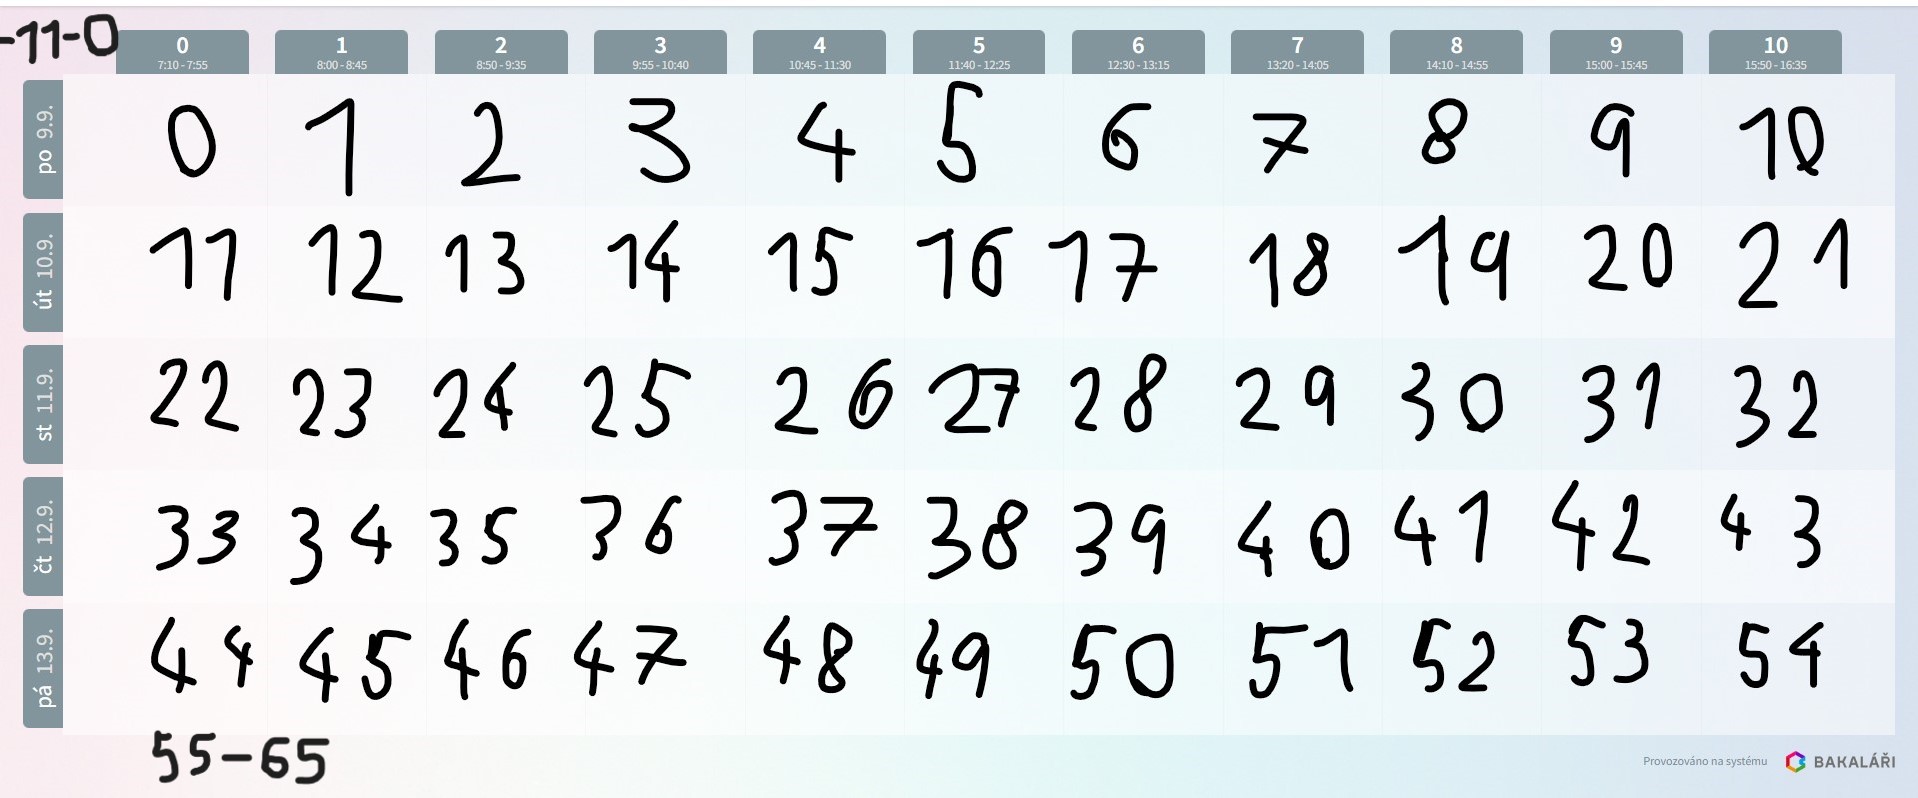 -11-0
0 1 2 3 4 5 6 7 8 9 10
7:10 - 7:55 8:00 - 8:45 8:50 - 9:35 9:55 - 10:40 10:45 - 11:30 11:40 - 12:25 12:30 - 13:15 13:20 - 14:05 14:10 - 14:55 15:00 - 15:45 15:50 - 16:35
po 9.9. 0 1 2 3 4 5 6 7 8 9 10
út 10.9. 11 12 13 14 15 16 17 18 19 20 21
st 11.9. 22 23 24 25 26 27 28 29 30 31 32
čt 12.9. 33 34 35 36 37 38 39 40 41 42 43
pá 13.9. 44 45 46 47 48 49 50 51 52 53 54
55-65
Provozováno na systému BAKALÁŘI